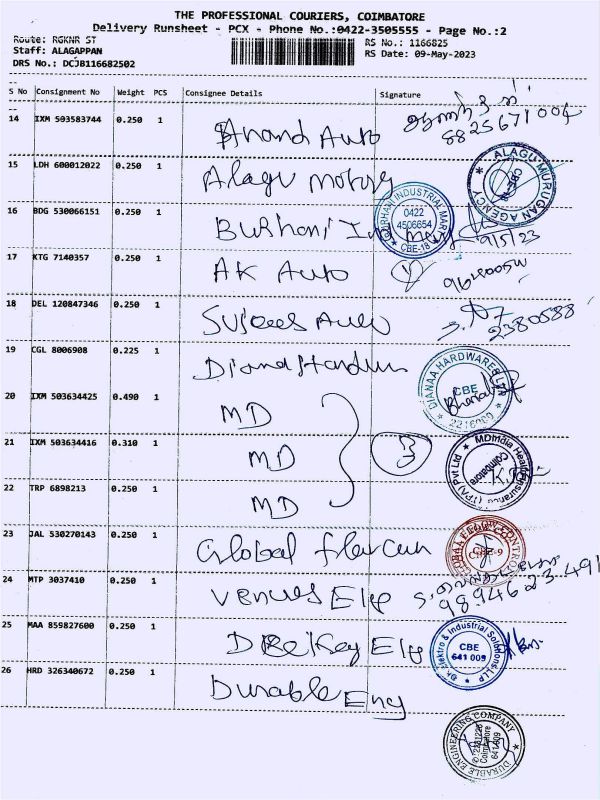 THE PROFESSIONAL COURIERS, COIMBATORE
Delivery Runsheet - PCX - Phone No.:0422-3505555 - Page No.:2
Route: RGKNR ST
RS No.: 1166825
Staff: ALAGAPPAN
RS Date: 09-May-2023
DRS No.: DCJB116682502
S No Consignment No Weight PCS Consignee Details Signature
14 IXM 503583744 0.250 1 Anand Auto 8825671004
15 LDH 600012022 0.250 1 Alagu Motors
ALAGU MURUGAN AGENCY CBE-18
16 BDG 530066151 0.250 1 Burhani 9/5/23
BURHANI INDUSTRIAL MART 0422 4506654 CBE-18
17 KTG 7140357 0.250 1 AK Auto
18 DEL 120847346 0.250 1 Auto 2380588
19 CGL 8006908 0.225 1
DIANAA HARDWARE CBE 2216000
20 IXM 503634425 0.490 1 MD
21 IXM 503634416 0.310 1 MD
MDIndia Health Insurance (TPA) Pvt Ltd Coimbatore
22 TRP 6898213 0.250 1 MD
23 JAL 530270143 0.250 1 Global
CBE-9
24 MTP 3037410 0.250 1 Venus 98946 23491
25 MAA 859827600 0.250 1
Elektro & Industrial Solutions LLP CBE 641 009
26 HRD 326340672 0.250 1 Durable Eng
DURABLE ENGINEERING COMPANY Coimbatore 641 009